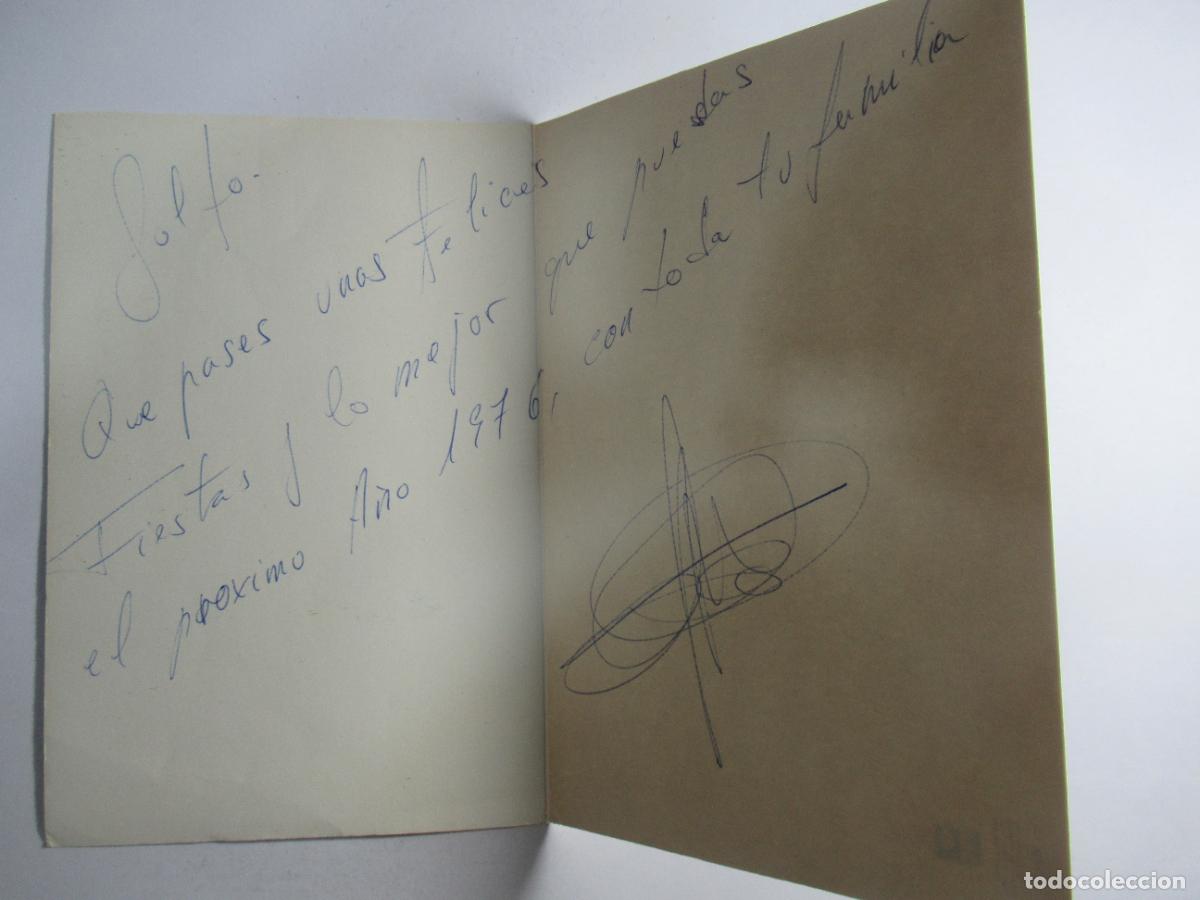 Que pases unas Felices
Fiestas y lo mejor que puedas
el proximo Año 1976, con toda tu familia
todocoleccion